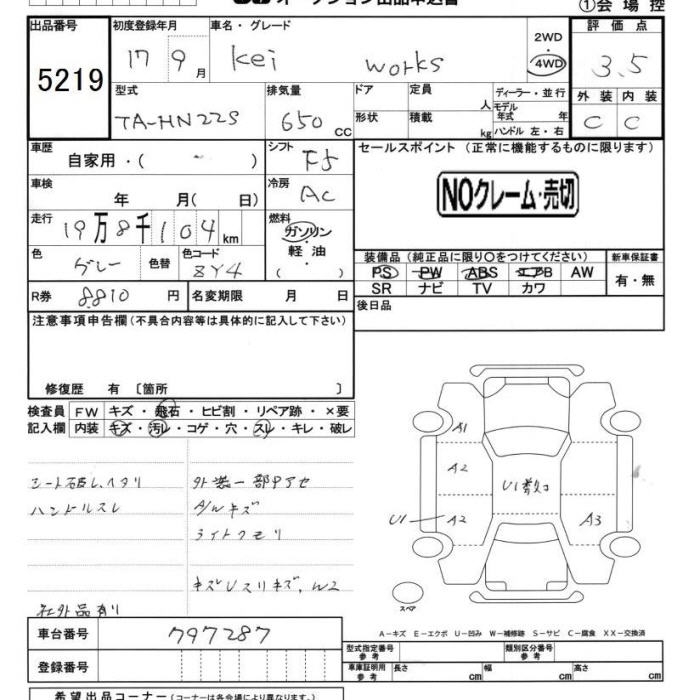 オークション出品申込書
①会場控
出品番号
5219
初度登録年月
17 9月
車名・グレード
kei works
2WD
・
4WD
評価点
3.5
型式
TA-HN22S
排気量
650 CC
ドア
形状
定員
人
積載
kg
ディーラー・並行
モデル
年式 年
ハンドル 左・右
外装 内装
C C
車歴
自家用・( )
シフト
F5
セールスポイント (正常に機能するものに限ります)
NOクレーム・売切
車検
年 月( 日)
冷房
AC
走行
19万8千104km
燃料
ガソリン
・
軽油
( )
色
グレー
色替
色コード
ZY4
装備品 (純正品に限り〇をつけてください)
PS PW ABS エアB AW
SR ナビ TV カワ
新車保証書
有・無
R券 8810 円
名変期限 月 日
後日品
注意事項申告欄(不具合内容等は具体的に記入して下さい)
修復歴 有 〔箇所 〕
検査員
記入欄
FW キズ・飛石・ヒビ割・リペア跡・×要
内装 キズ・汚レ・コゲ・穴・スレ・キレ・破レ
シート破レ、ヘタリ
ハンドルスレ
外装一部アセ
A/Wキズ
ライトクモリ
キズUスリキズ、W2
社外品有り
A1
A2
U1数コ
U1
A2
A3
スペア
A-キズ E-エクボ U-凹み W-補修跡 S-サビ C-腐食 XX-交換済
車台番号 797287
登録番号
型式指定番号
参考
類別区分番号
参考
車庫証明用
参考
長さ cm
幅 cm
高さ cm
希望出品コーナー(コーナーは各会場により異なります。)